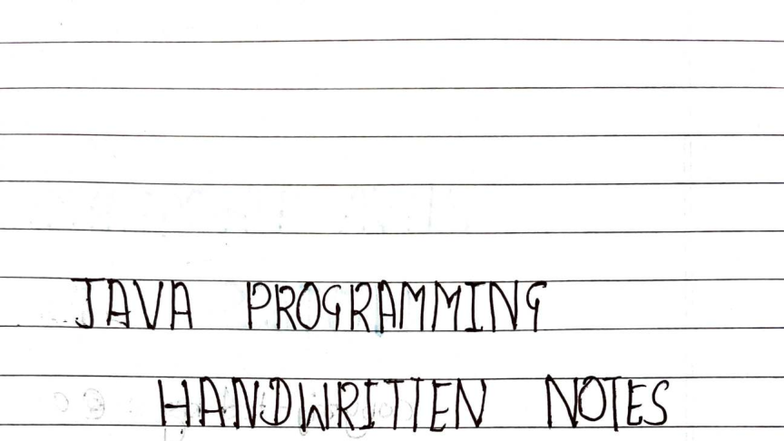 JAVA PROGRAMMING
HANDWRITTEN NOTES